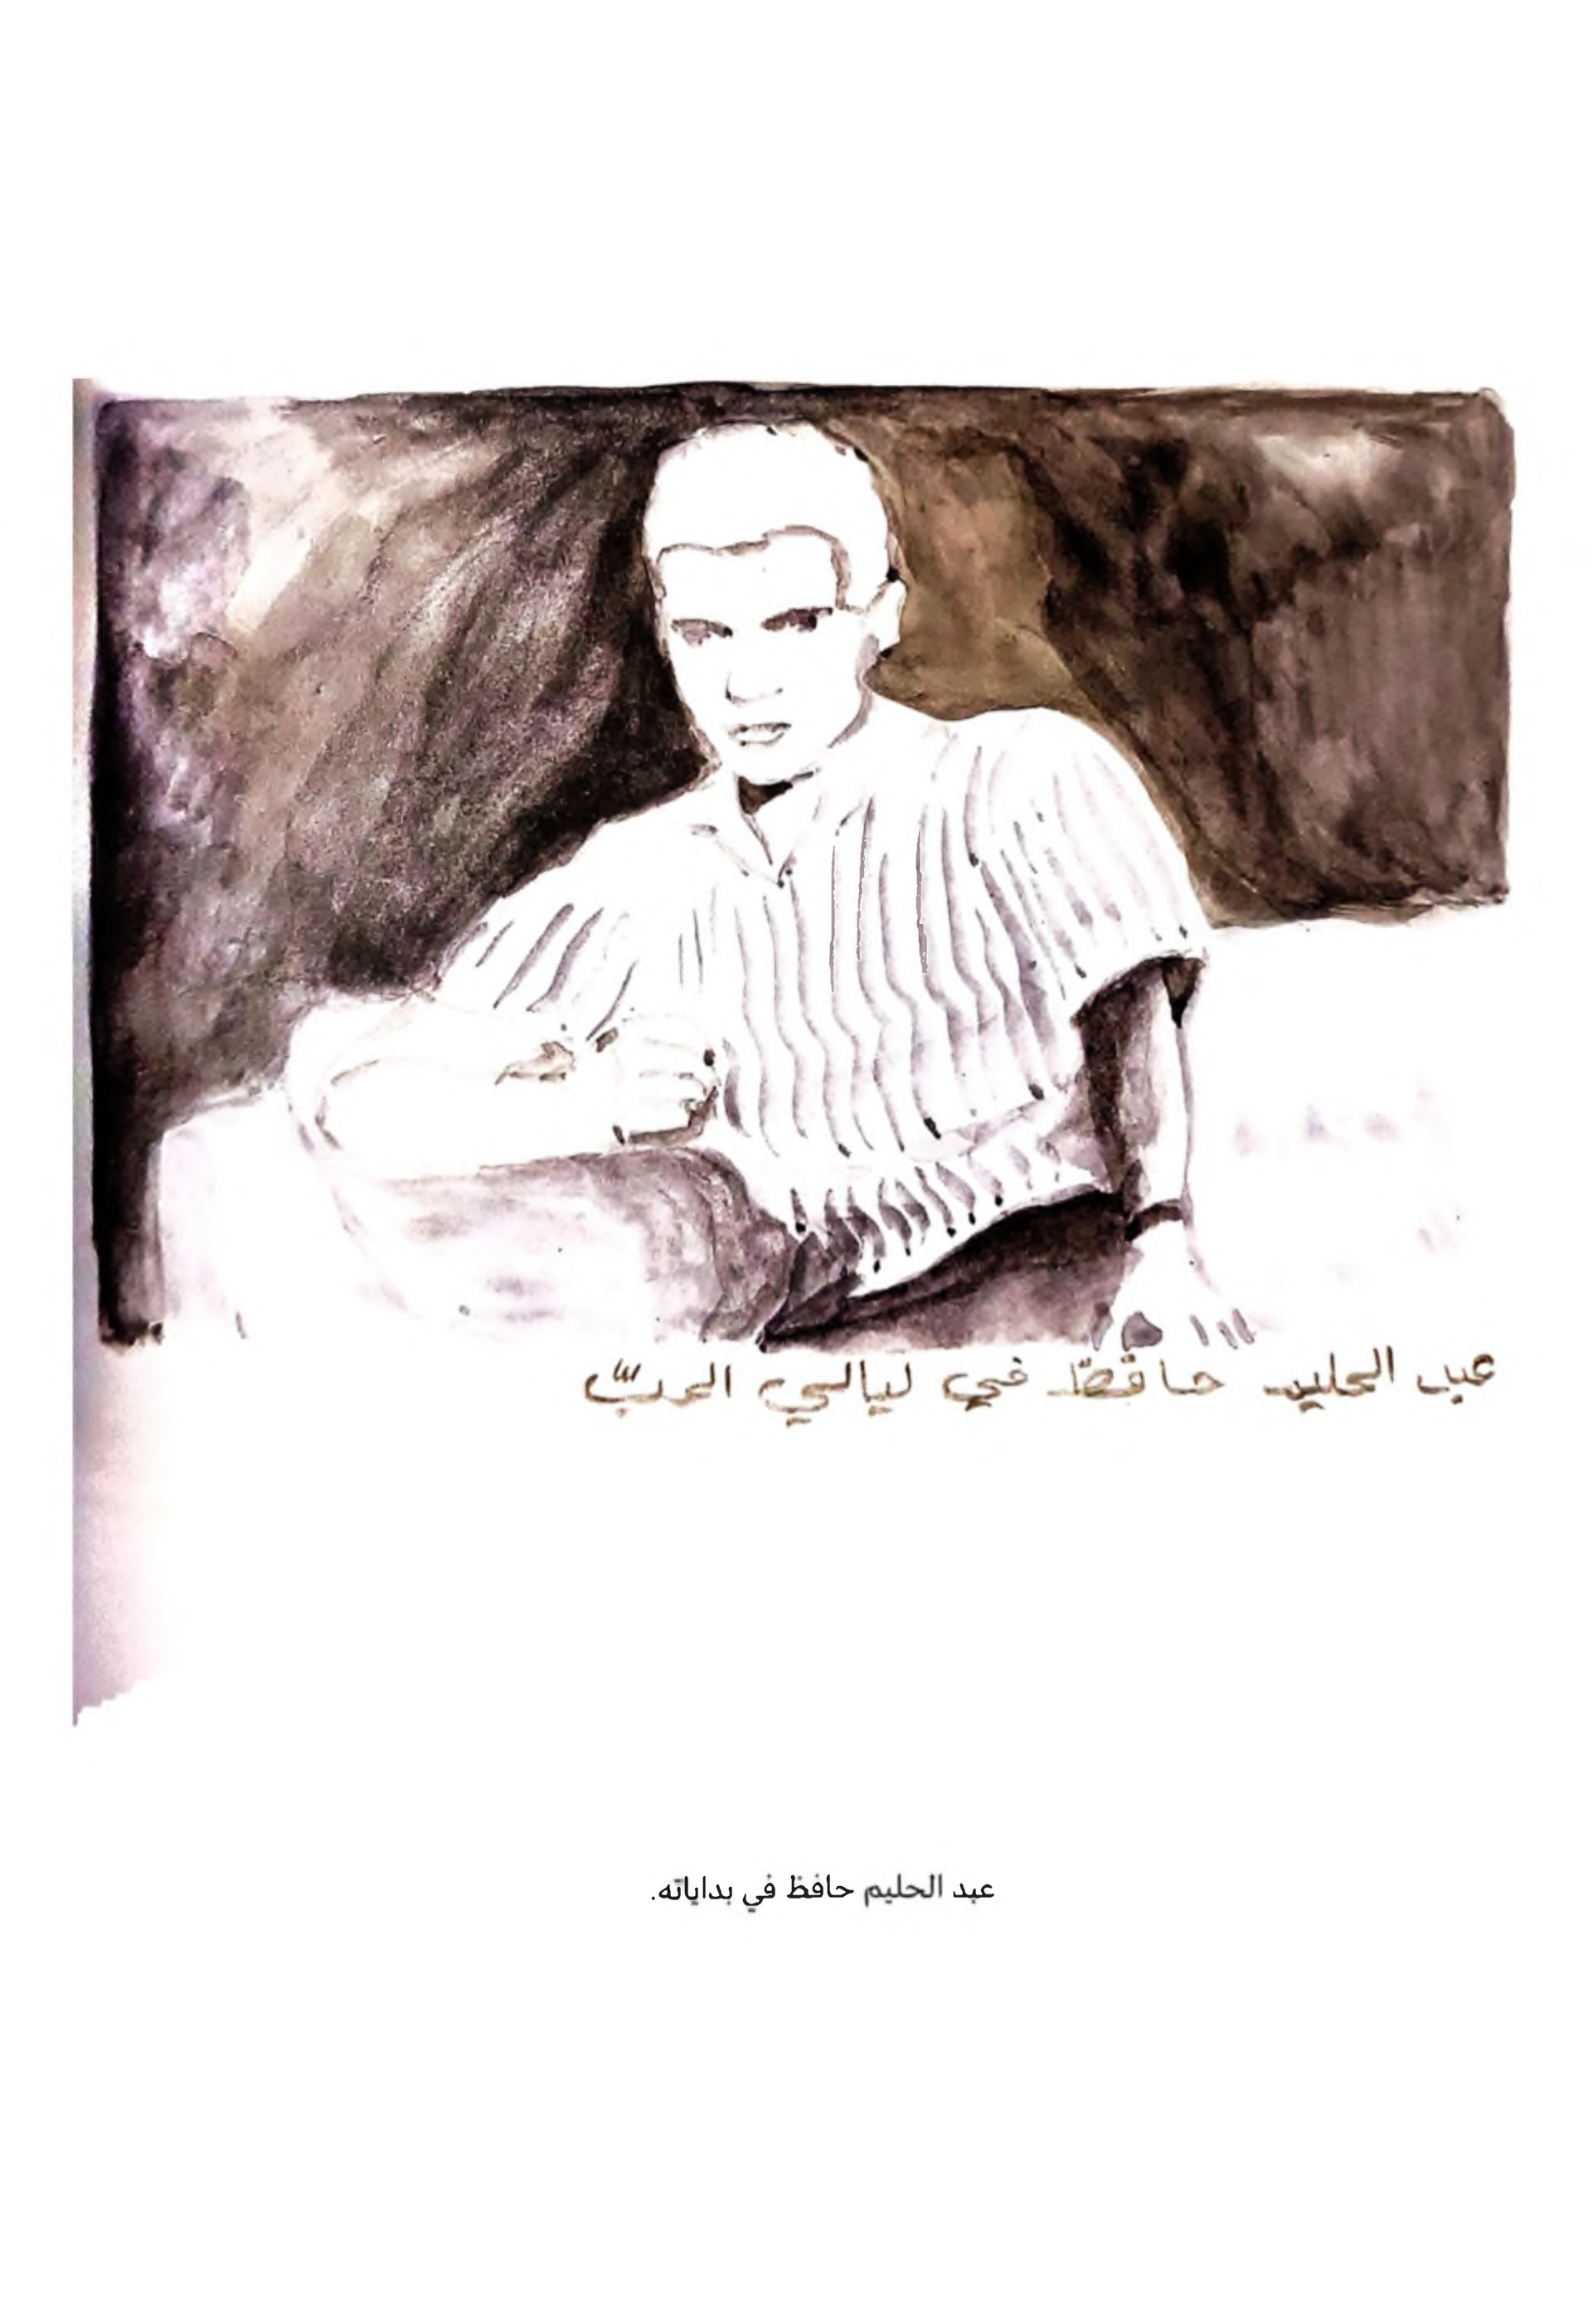 عبد الحليم حافظ في ليالي الحبّ
عبد الحليم حافظ في بداياته.